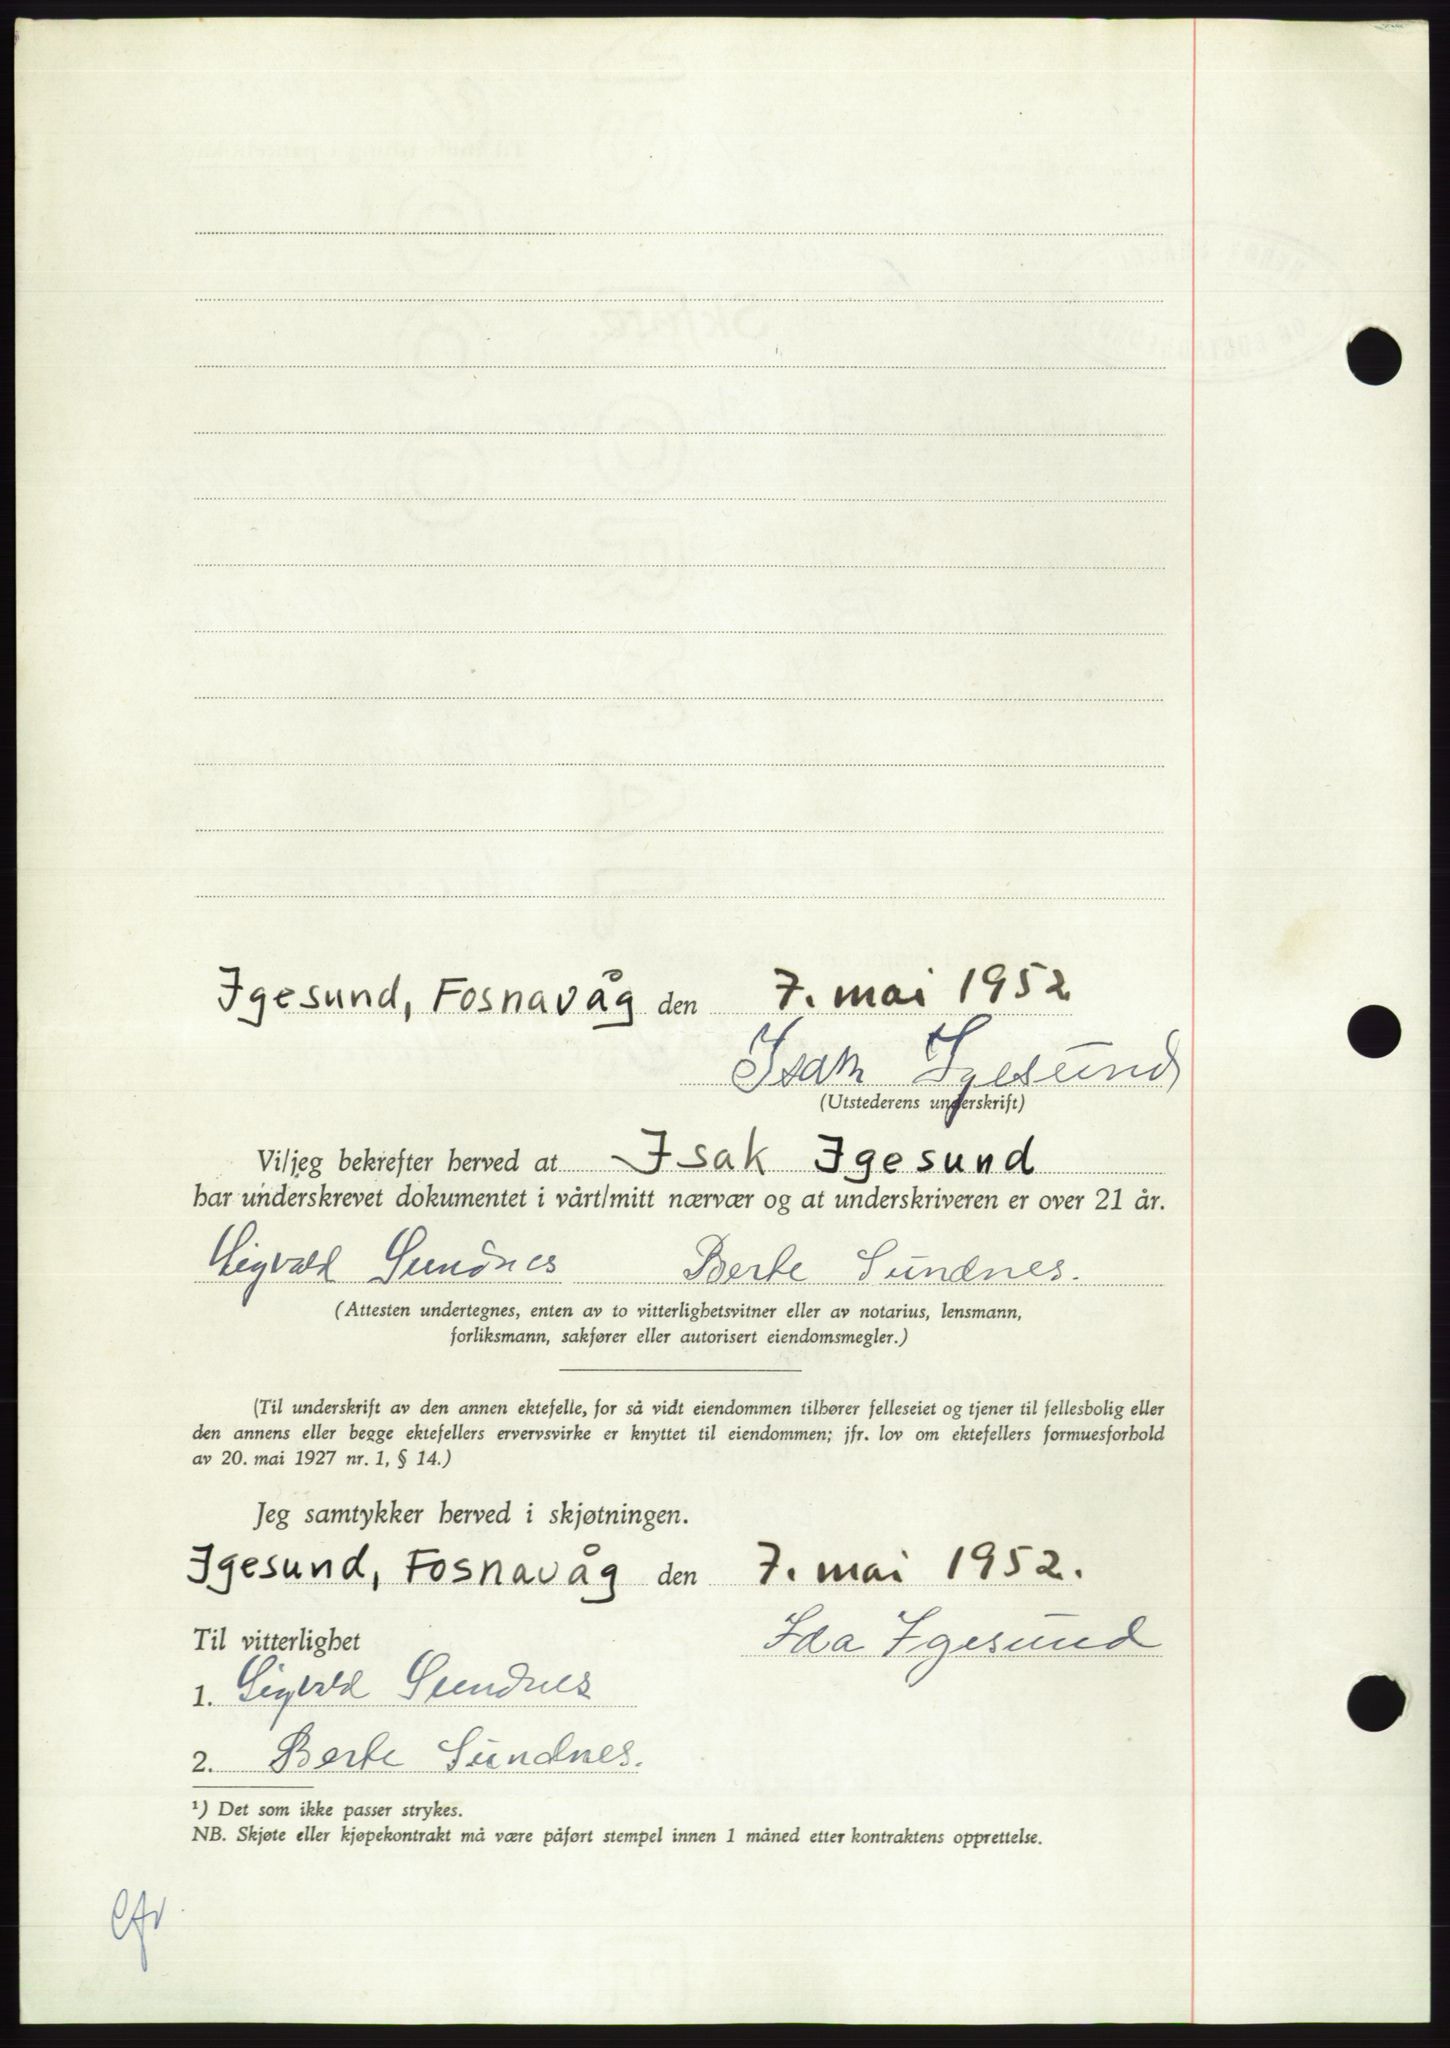 Igesund, Fosnavåg den 7. mai 1952
Isak Igesund
(Utstederens underskrift)
Vi/jeg bekrefter herved at Isak Igesund
har underskrevet dokumentet i vårt/mitt nærvær og at underskriveren er over 21 år.
Sigvald Sundnes Berte Sundnes.
(Attesten undertegnes, enten av to vitterlighetsvitner eller av notarius, lensmann,
forliksmann, sakfører eller autorisert eiendomsmegler.)
(Til underskrift av den annen ektefelle, for så vidt eiendommen tilhører felleseiet og tjener til fellesbolig eller
den annens eller begge ektefellers ervervsvirke er knyttet til eiendommen; jfr. lov om ektefellers formuesforhold
av 20. mai 1927 nr. 1, § 14.)
Jeg samtykker herved i skjøtningen.
Igesund, Fosnavåg den 7. mai 1952.
Til vitterlighet Ida Igesund
1. Sigvald Sundnes
2. Berte Sundnes.
¹) Det som ikke passer strykes.
NB. Skjøte eller kjøpekontrakt må være påført stempel innen 1 måned etter kontraktens opprettelse.